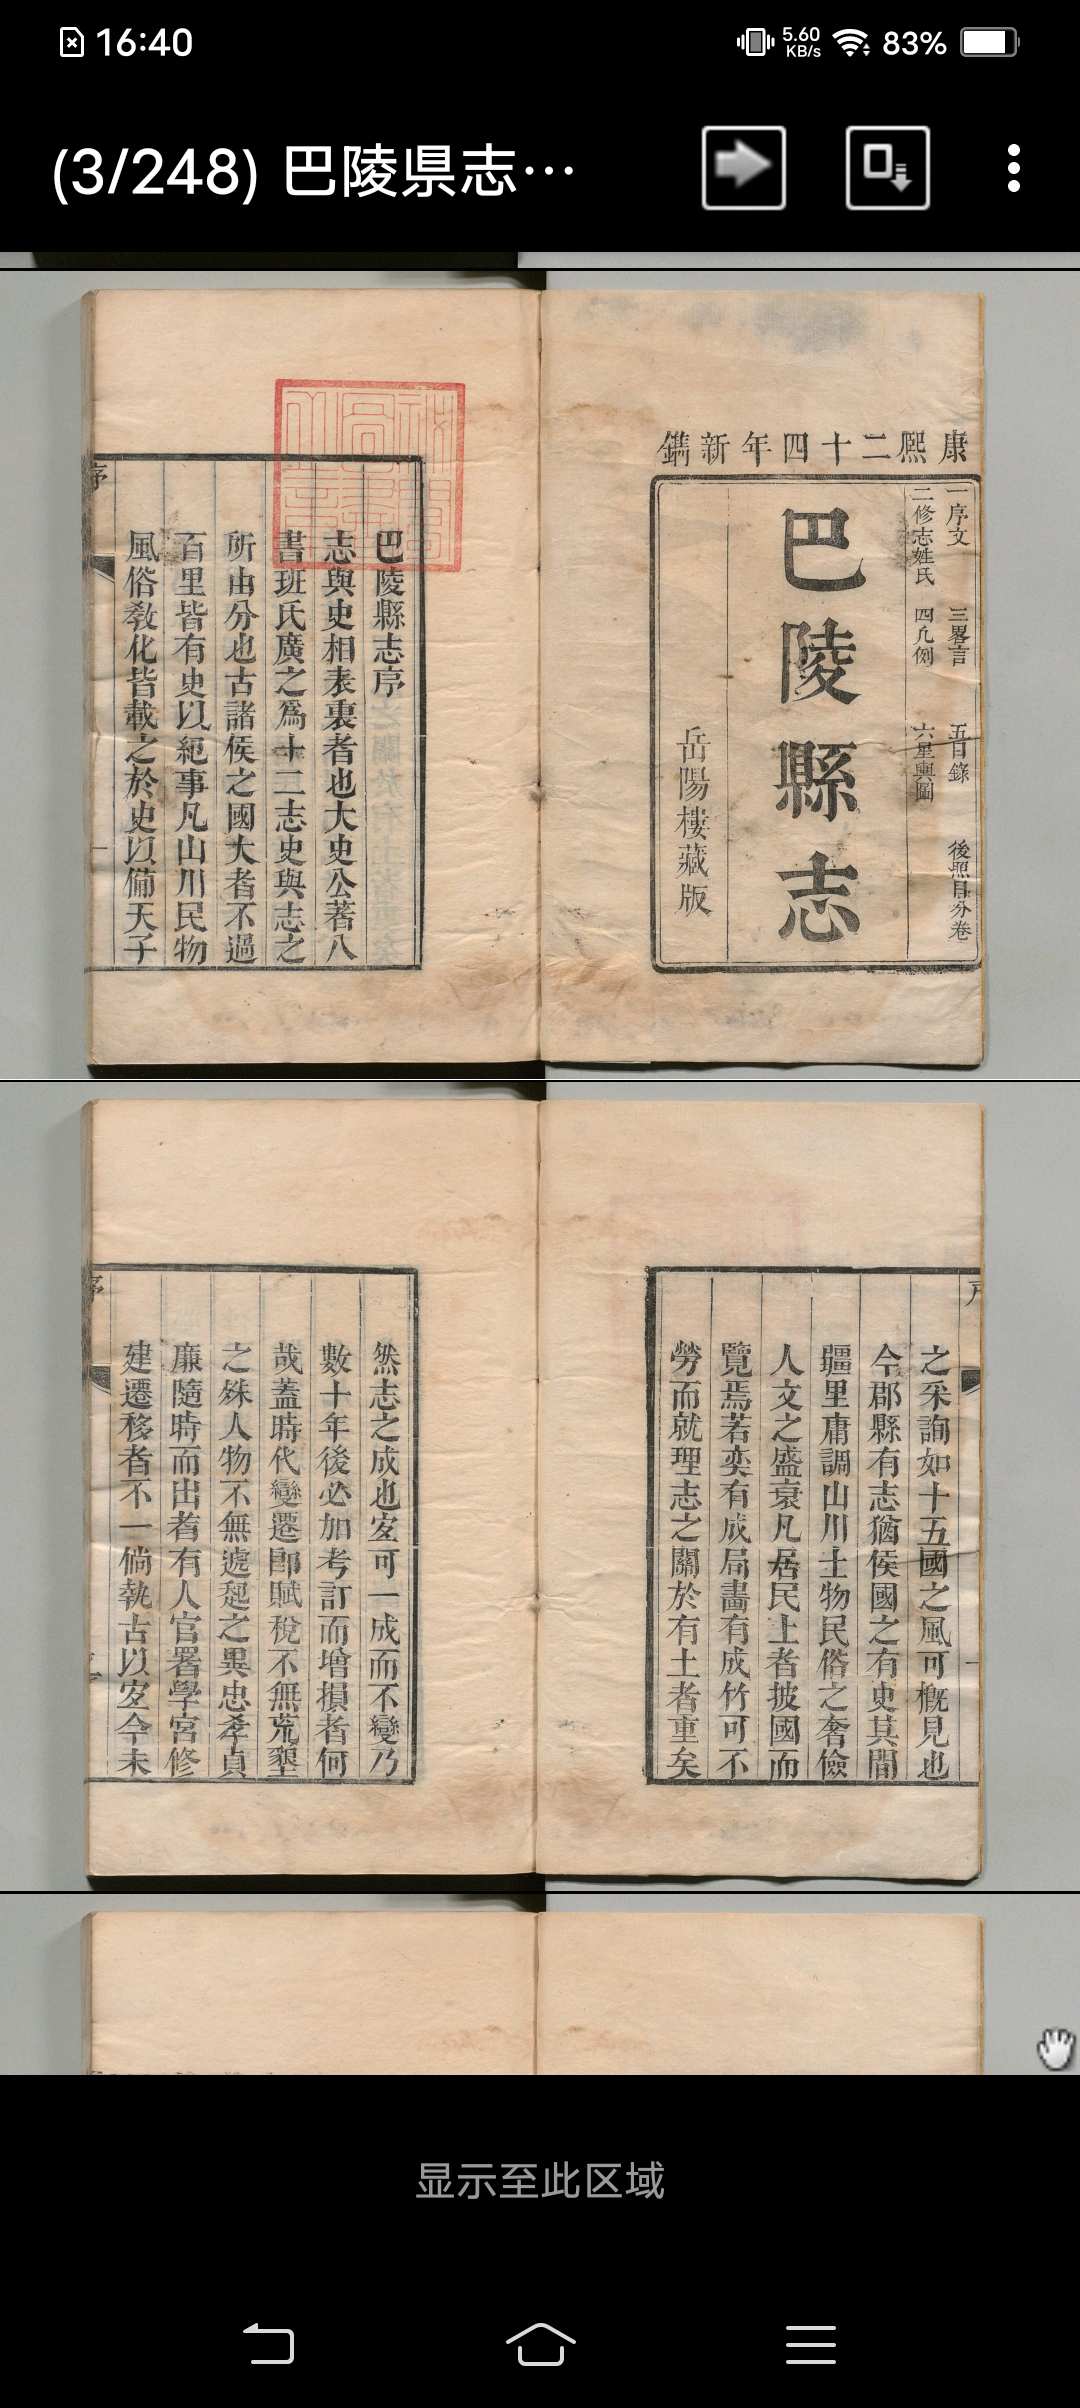 16:40
5.60
KB/s
83%
(3/248) 巴陵県志…
康熙二十四年新鐫
一序文 三畧言 五目錄 後照目分卷
二修志姓氏 四凡例 六星輿圖
巴陵縣志
岳陽樓藏版
巴陵縣志序
志與史相表裏者也大史公著八
書班氏廣之爲十二志史與志之
所由分也古諸侯之國大者不過
百里皆有史以紀事凡山川民物
風俗敎化皆載之於史以備天子
序
一
之采詢如十五國之風可槪見也
今郡縣有志猶侯國之有史其間
疆里庸調山川土物民俗之奢儉
人文之盛衰凡居民上者披國而
覽焉若奕有成局畵有成竹可不
勞而就理志之關於有土者重矣
然志之成也寔可一成而不變乃
數十年後必加考訂而增損者何
哉蓋時代變遷郎賦稅不無荒墾
之殊人物不無遞起之異忠孝貞
廉隨時而出者有人官署學宮修
建遷移者不一倘執古以定今未
序
显示至此区域